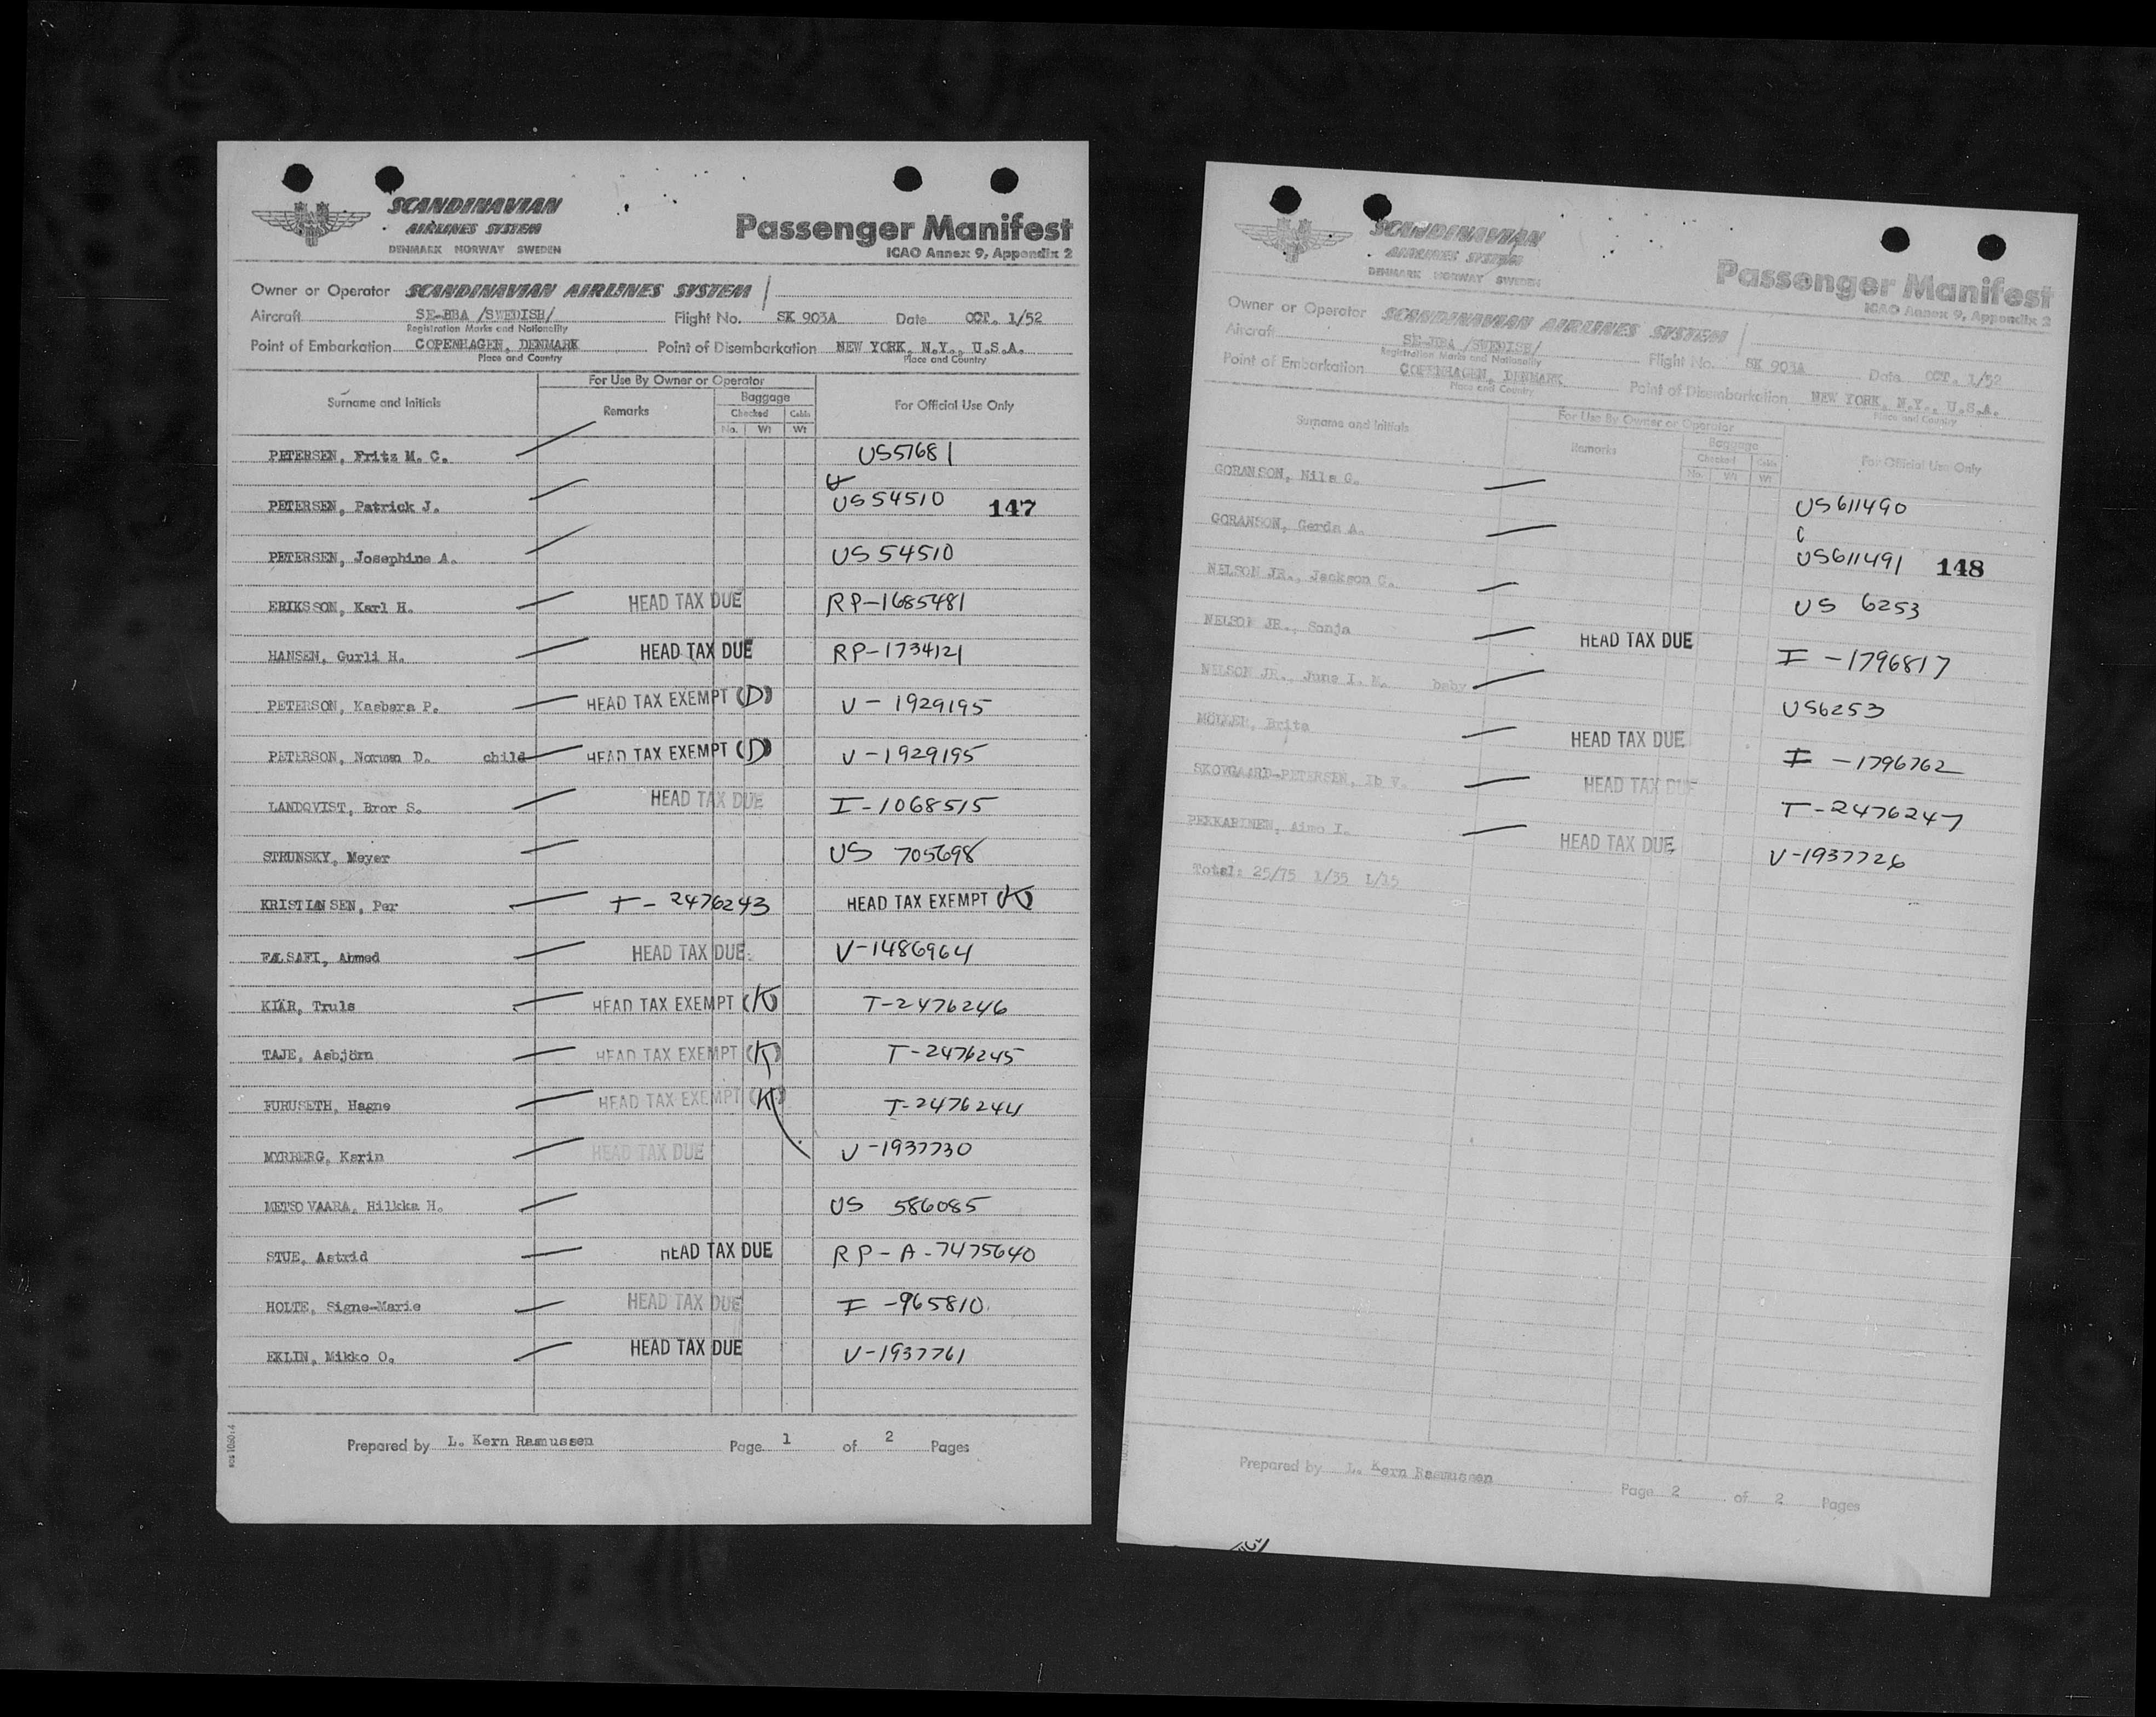 SCANDINAVIAN
AIRLINES SYSTEM
DENMARK NORWAY SWEDEN
Passenger Manifest
ICAO Annex 9, Appendix 2
Owner or Operator SCANDINAVIAN AIRLINES SYSTEM /
Aircraft SE-BBA /SWEDISH/ Flight No. SK 903A Date OCT. 1/52
Registration Marks and Nationality
Point of Embarkation COPENHAGEN, DENMARK Point of Disembarkation NEW YORK, N.Y., U.S.A.
Place and Country Place and Country
Surname and Initials For Use By Owner or Operator For Official Use Only
Remarks Baggage
Checked Cabin
No. Wt Wt
PETERSEN, Fritz M. C. US57681
PETERSEN, Patrick J. US 54510 147
PETERSEN, Josephine A. US 54510
ERIKSSON, Karl H. HEAD TAX DUE RP-1685481
HANSEN, Gurli H. HEAD TAX DUE RP-1734121
PETERSON, Kasbara P. HEAD TAX EXEMPT (D) V-1929195
PETERSON, Norman D. child HEAD TAX EXEMPT (D) V-1929195
LANDQVIST, Bror S. HEAD TAX DUE I-1068515
STRUNSKY, Meyer US 705698
KRISTIANSEN, Per T-2476243 HEAD TAX EXEMPT (K)
FALSAFI, Ahmed HEAD TAX DUE V-1486964
KIÄR, Truls HEAD TAX EXEMPT (K) T-2476246
TAJE, Asbjörn HEAD TAX EXEMPT (K) T-2476245
FURUSETH, Hagne HEAD TAX EXEMPT (K) T-2476244
MYRBERG, Karin HEAD TAX DUE V-1937730
METSOVAARA, Hilkka H. US 586085
STUE, Astrid HEAD TAX DUE RP-A-7475640
HOLTE, Signe-Marie HEAD TAX DUE I-965810
EKLIN, Mikko O. HEAD TAX DUE V-1937761
Prepared by L. Kern Rasmussen Page 1 of 2 Pages
SCANDINAVIAN
AIRLINES SYSTEM
DENMARK NORWAY SWEDEN
Passenger Manifest
ICAO Annex 9, Appendix 2
Owner or Operator SCANDINAVIAN AIRLINES SYSTEM /
Aircraft SE-BBA /SWEDISH/ Flight No. SK 903A Date OCT. 1/52
Registration Marks and Nationality
Point of Embarkation COPENHAGEN, DENMARK Point of Disembarkation NEW YORK, N.Y., U.S.A.
Place and Country Place and Country
Surname and Initials For Use By Owner or Operator For Official Use Only
Remarks Baggage
Checked Cabin
No. Wt Wt
GORANSON, Nils G. US611490
GORANSON, Gerda A. US611491 148
NELSON JR., Jackson C. US 6253
NELSON JR., Sonja HEAD TAX DUE I-1796817
NELSON JR., June I. M. baby US6253
MÖLLER, Brita HEAD TAX DUE I-1796762
SKOVGAARD-PETERSEN, Ib V. HEAD TAX DUE T-2476247
PEKKARINEN, Aimo I. HEAD TAX DUE V-1937726
Total: 25/75 1/35 1/15
Prepared by L. Kern Rasmussen Page 2 of 2 Pages